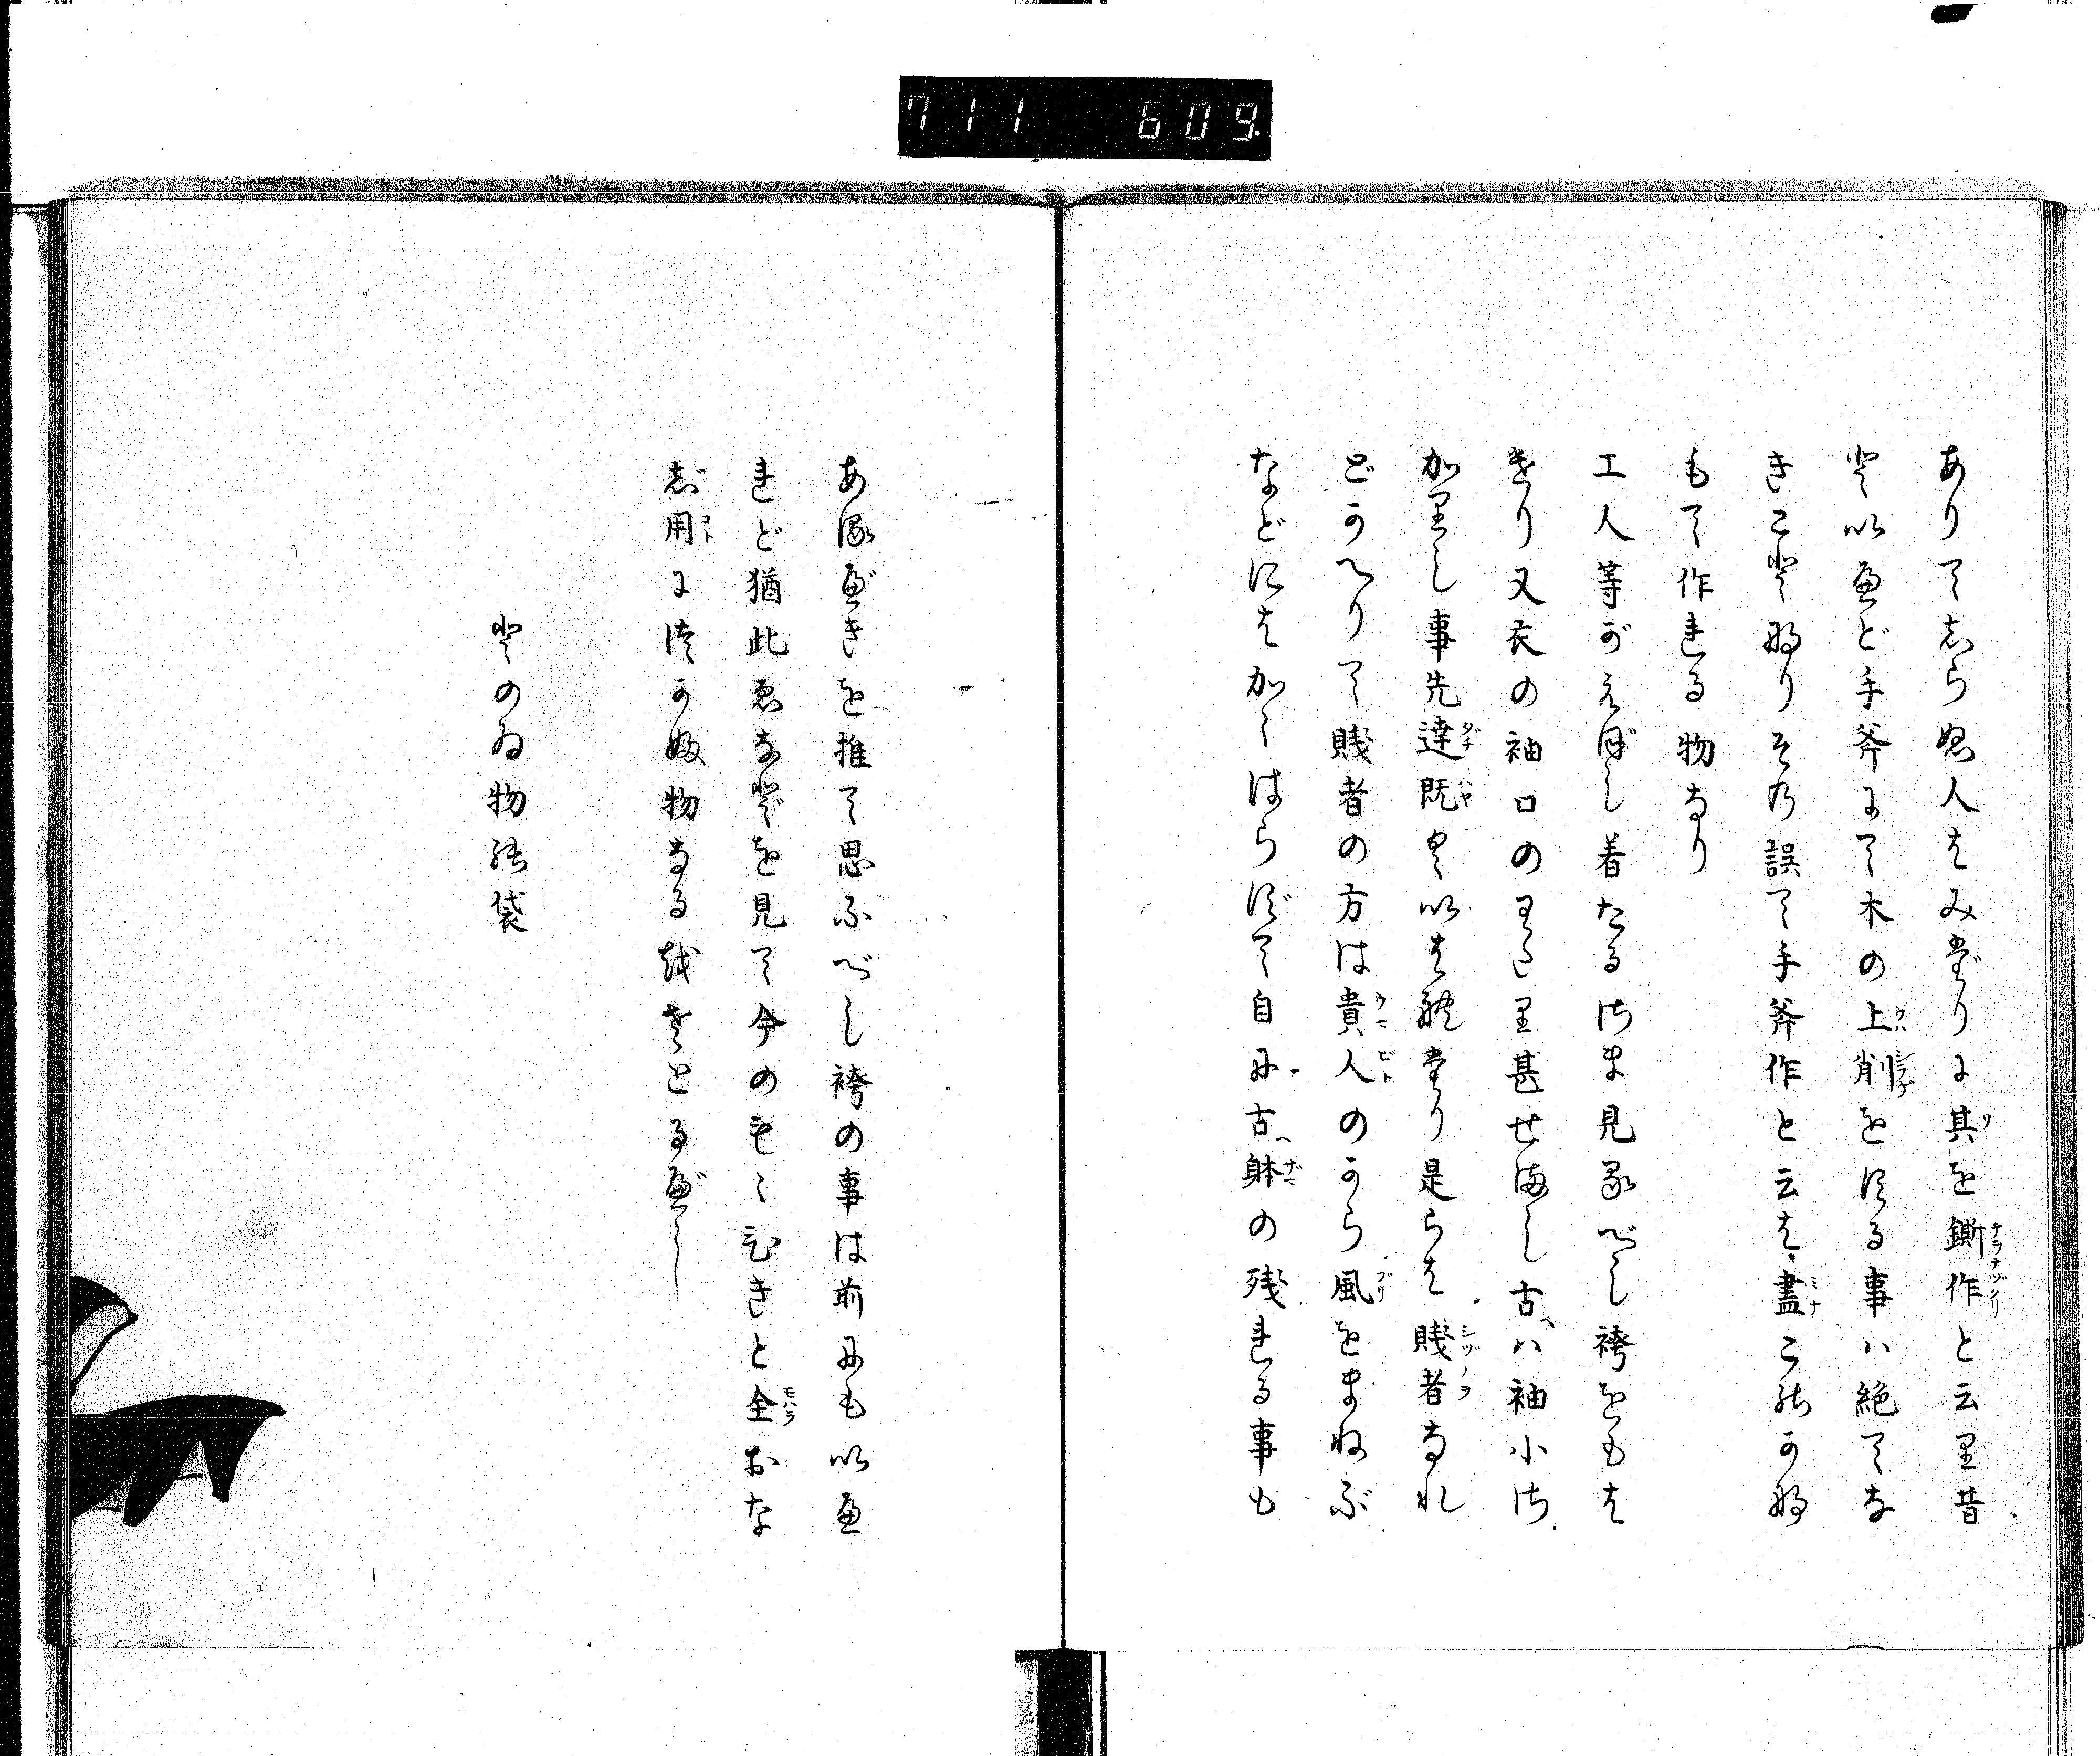 711 609
ありてしらぬ人はみだりに其を鐁作と云り昔
といへど手斧にて木の上削をする事ハ絶てな
きことなりその誤て手斧作と云は盡これかな
もて作れる物なり
工人等がえぼし着たるさま見るべし袴をもは
けり又衣の袖口のわたり甚せまし古ハ袖小さ
かりし事先達既くいはれたり是らは賤者なれ
どかへりて賤者の方は貴人のから風をまねぶ
などにはかゝはらずて自に古躰の残れる事も
あるべきを推て思ふべし袴の事は前にもいへ
れど猶此ゑなどを見て今のもゝひきと全おな
じ用につかふ物なるをさとるべし
とのゐ物の袋